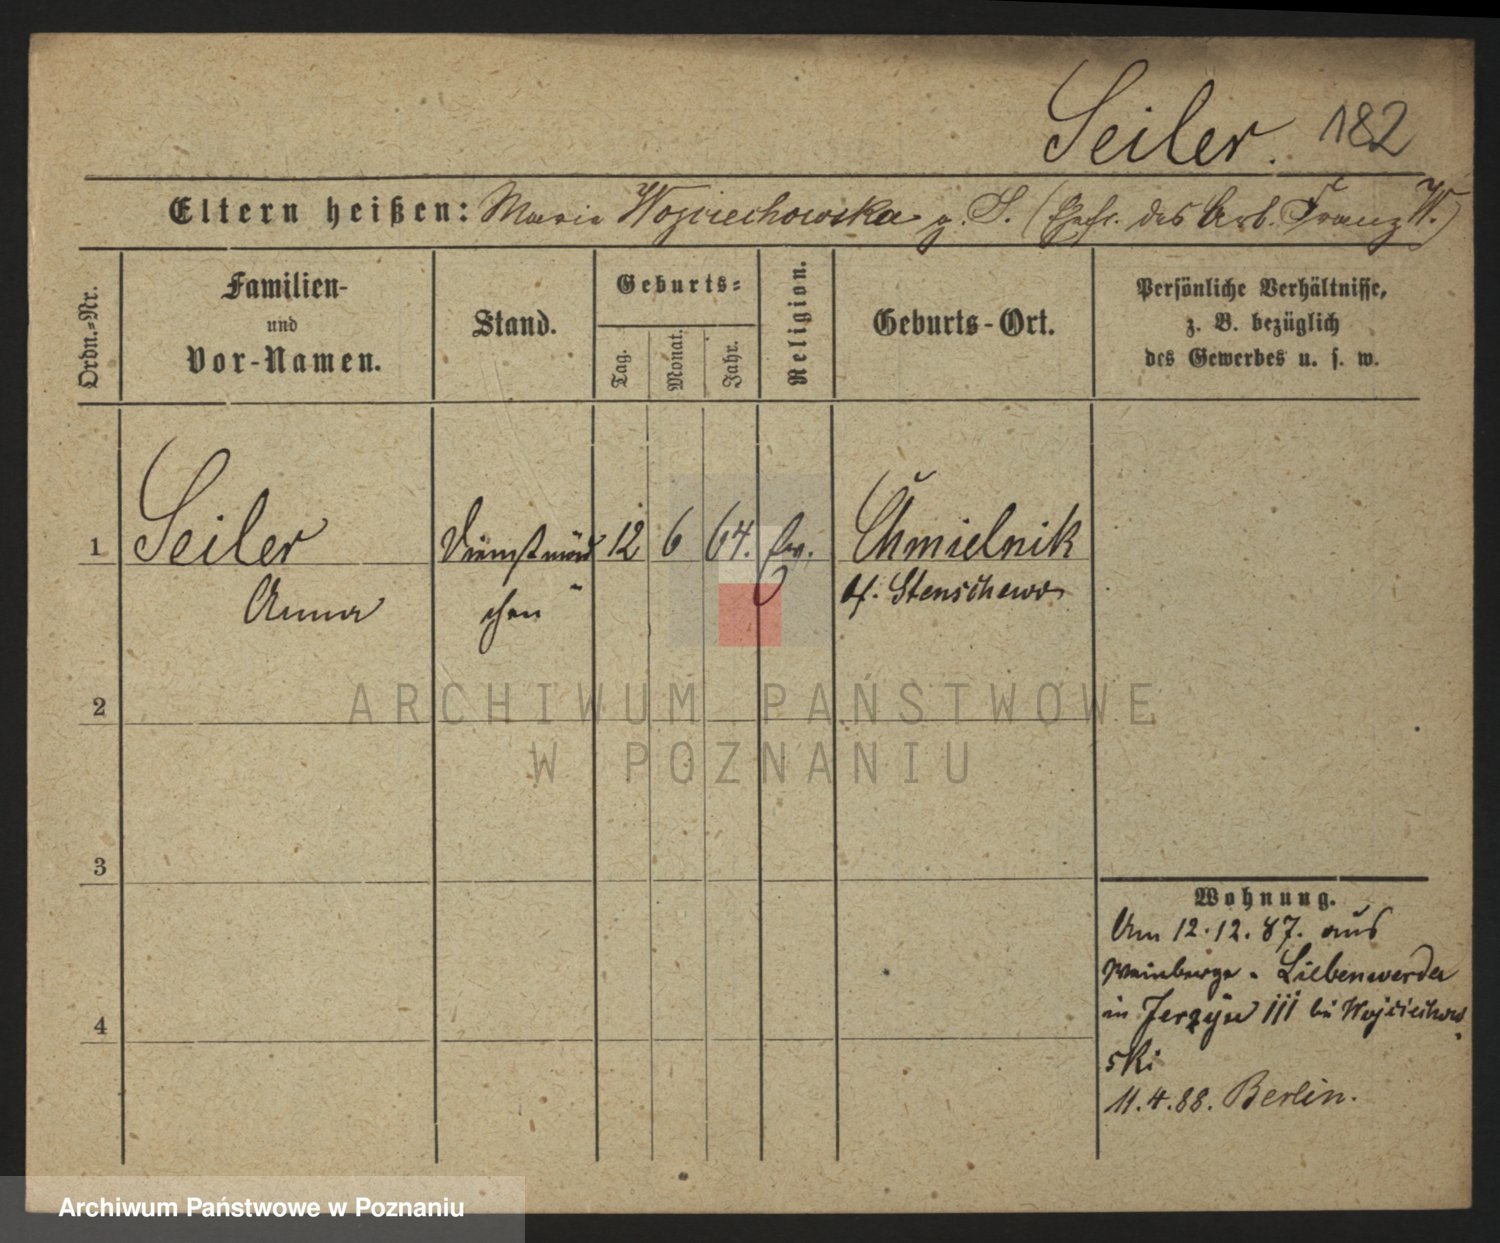 Seiler. 182
Eltern heißen: Maria Wojciechowska g. S. (Ehefr. des Arb. Franz W.)
Ordn.=Nr.
Familien-
und
Vor-Namen.
Stand.
Geburts=
Tag.
Monat.
Jahr.
Religion.
Geburts-Ort.
Persönliche Verhältnisse,
z. B. bezüglich
des Gewerbes u. s. w.
1 Seiler Dienstmäd 12 6 64. ev. Chmielnik
Anna chen Stenschewo
2
3
4
Wohnung.
Am 12.12.87. aus
Weinberge - Liebenwerda
in Jerzyce III bei Wojciechow
ski
11.4.88. Berlin.
ARCHIWUM PAŃSTWOWE
W POZNANIU
Archiwum Państwowe w Poznaniu